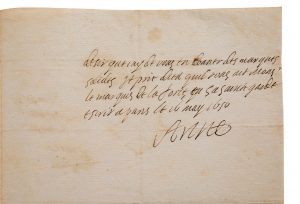 desir que jay de vous en donner des marques
je prie dieu quil vous ait mons.
le marquis de la force en sa sainte garde
escrit a paris le 16 may 1650
Anne